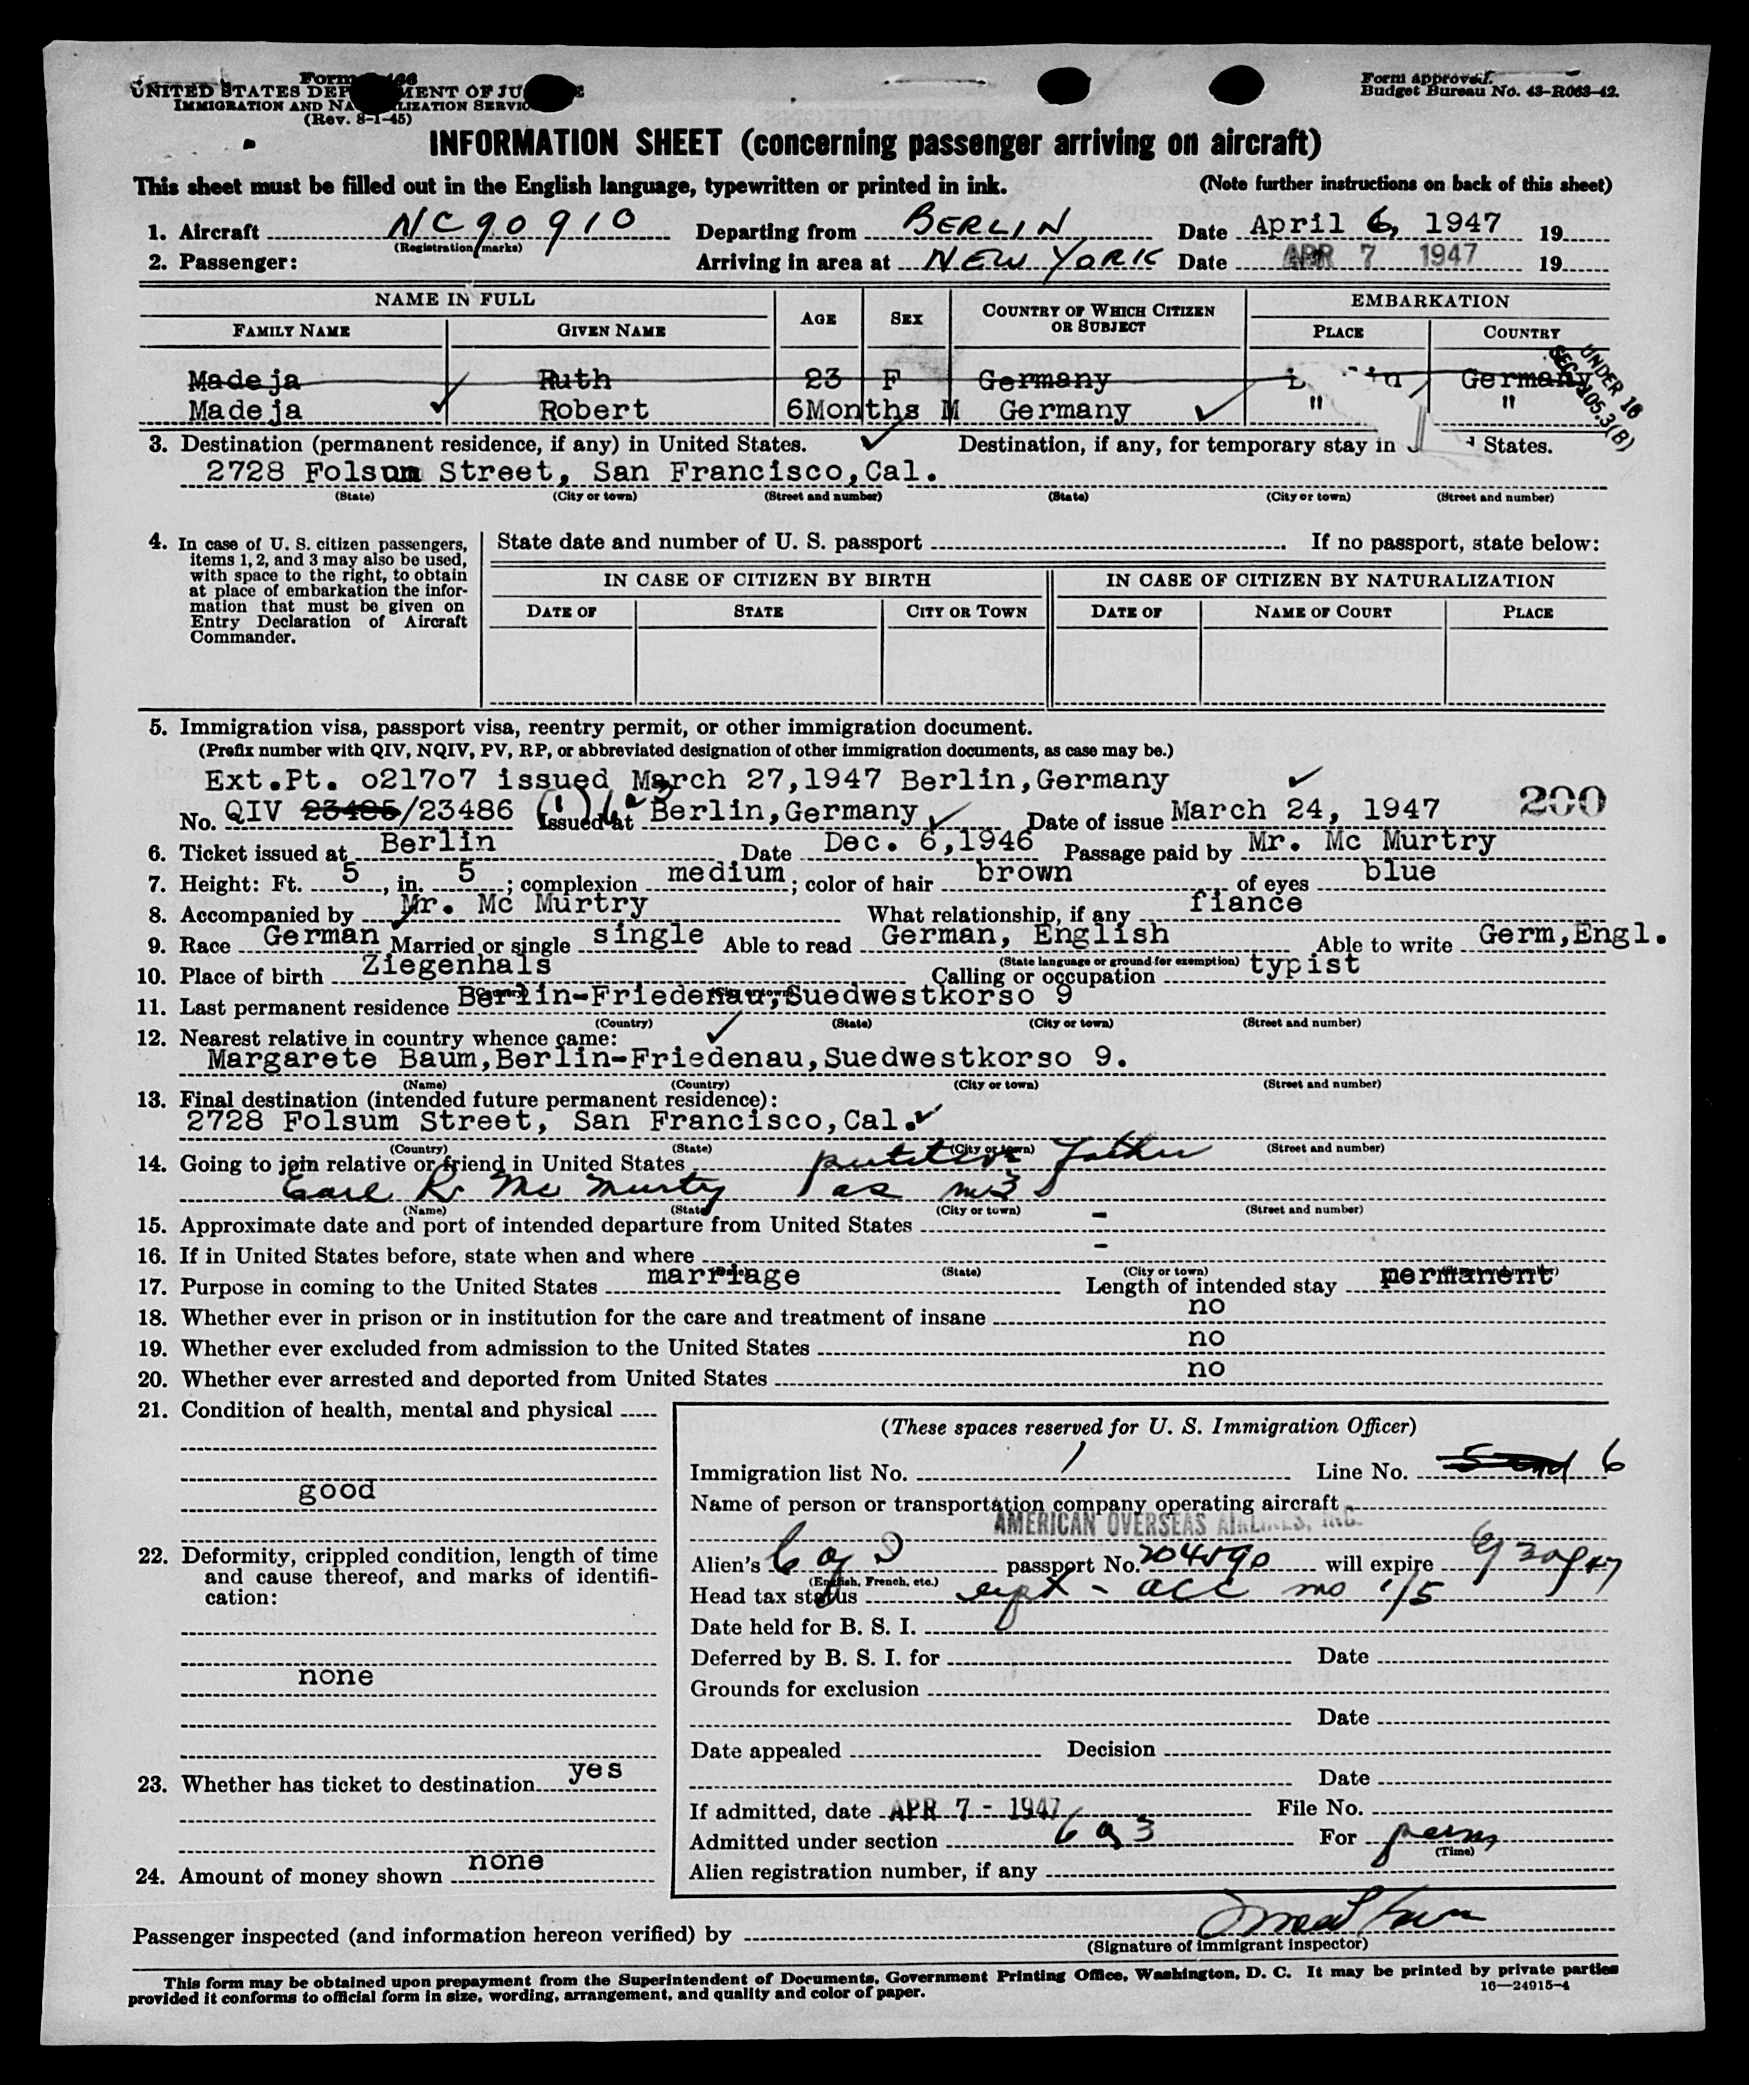 Form
UNITED STATES DEPARTMENT OF JUSTICE
IMMIGRATION AND NATURALIZATION SERVICE
(Rev. 8-1-45)
Form approved.
Budget Bureau No. 43-R063-42.
INFORMATION SHEET (concerning passenger arriving on aircraft)
This sheet must be filled out in the English language, typewritten or printed in ink. (Note further instructions on back of this sheet)
1. Aircraft NC90910 Departing from BERLIN Date April 6, 1947 19
(Registration marks)
2. Passenger: Arriving in area at NEW YORK Date APR 7 1947 19
NAME IN FULL AGE SEX COUNTRY OF WHICH CITIZEN OR SUBJECT EMBARKATION
FAMILY NAME GIVEN NAME PLACE COUNTRY
Madeja Ruth 23 F Germany Germany
Madeja Robert 6Months M Germany " "
UNDER 16
SEC. 105.3(B)
3. Destination (permanent residence, if any) in United States. Destination, if any, for temporary stay in States.
2728 Folsum Street, San Francisco,Cal.
(State) (City or town) (Street and number) (State) (City or town) (Street and number)
4. In case of U. S. citizen passengers, items 1, 2, and 3 may also be used, with space to the right, to obtain at place of embarkation the information that must be given on Entry Declaration of Aircraft Commander.
State date and number of U. S. passport . If no passport, state below:
IN CASE OF CITIZEN BY BIRTH IN CASE OF CITIZEN BY NATURALIZATION
DATE OF STATE CITY OR TOWN DATE OF NAME OF COURT PLACE
5. Immigration visa, passport visa, reentry permit, or other immigration document.
(Prefix number with QIV, NQIV, PV, RP, or abbreviated designation of other immigration documents, as case may be.)
Ext.Pt. o217o7 issued March 27,1947 Berlin,Germany
No. QIV 23485/23486 Issued at Berlin,Germany Date of issue March 24, 1947 200
6. Ticket issued at Berlin Date Dec. 6,1946 Passage paid by Mr. Mc Murtry
7. Height: Ft. 5, in. 5; complexion medium; color of hair brown of eyes blue
8. Accompanied by Mr. Mc Murtry What relationship, if any fiance
9. Race German Married or single single Able to read German, English Able to write Germ,Engl.
(State language or ground for exemption)
10. Place of birth Ziegenhals Calling or occupation typist
(Country) (City or town)
11. Last permanent residence Berlin-Friedenau,Suedwestkorso 9
(Country) (State) (City or town) (Street and number)
12. Nearest relative in country whence came:
Margarete Baum,Berlin-Friedenau,Suedwestkorso 9.
(Name) (Country) (City or town) (Street and number)
13. Final destination (intended future permanent residence):
2728 Folsum Street, San Francisco,Cal.
(Country) (State) (City or town) (Street and number)
14. Going to join relative or friend in United States putative father
Earl R. Mc Murtry as
(Name) (State) (City or town) (Street and number)
15. Approximate date and port of intended departure from United States -
16. If in United States before, state when and where -
(State) (City or town)
17. Purpose in coming to the United States marriage Length of intended stay permanent
18. Whether ever in prison or in institution for the care and treatment of insane no
19. Whether ever excluded from admission to the United States no
20. Whether ever arrested and deported from United States no
21. Condition of health, mental and physical
good
22. Deformity, crippled condition, length of time and cause thereof, and marks of identification:
none
23. Whether has ticket to destination yes
24. Amount of money shown none
(These spaces reserved for U. S. Immigration Officer)
Immigration list No. 1 Line No. 5 and 6
Name of person or transportation company operating aircraft
AMERICAN OVERSEAS AIRLINES, INC.
Alien's C of I passport No. will expire
(English, French, etc.)
Head tax status
Date held for B. S. I.
Deferred by B. S. I. for Date
Grounds for exclusion
Date
Date appealed Decision
Date
If admitted, date APR 7 - 1947 File No.
Admitted under section 6 a 3 For perm
(Time)
Alien registration number, if any
Passenger inspected (and information hereon verified) by
(Signature of immigrant inspector)
This form may be obtained upon prepayment from the Superintendent of Documents, Government Printing Office, Washington, D. C. It may be printed by private parties
provided it conforms to official form in size, wording, arrangement, and quality and color of paper.
16—24915-4